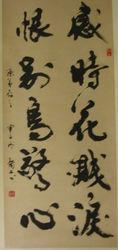 感時花濺淚
恨別鳥驚心